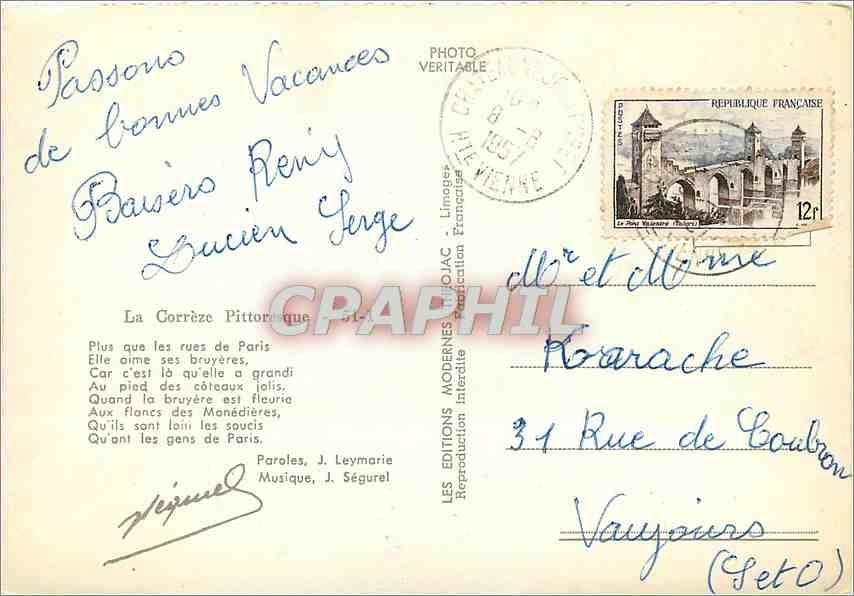 Passons
de bonnes Vacances
Baisers Remy
Lucien Serge
La Corrèze Pittoresque - 51-1
Plus que les rues de Paris
Elle aime ses bruyères,
Car c'est là qu'elle a grandi
Au pied des côteaux jolis.
Quand la bruyère est fleurie
Aux flancs des Monédières,
Qu'ils sont loin les soucis
Qu'ont les gens de Paris.
Paroles, J. Leymarie
Musique, J. Ségurel
Ségurel
PHOTO
VERITABLE
LES EDITIONS MODERNES THOJAC - Limoges
Reproduction Interdite Fabrication Française
8 - 8
1957
HTE VIENNE
REPUBLIQUE FRANÇAISE
POSTES
Le Pont Valentré (Cahors)
12F
Mr et Mme
Korarache
31 Rue de Coubron
Vaujours
(S et O)
CPAPHIL